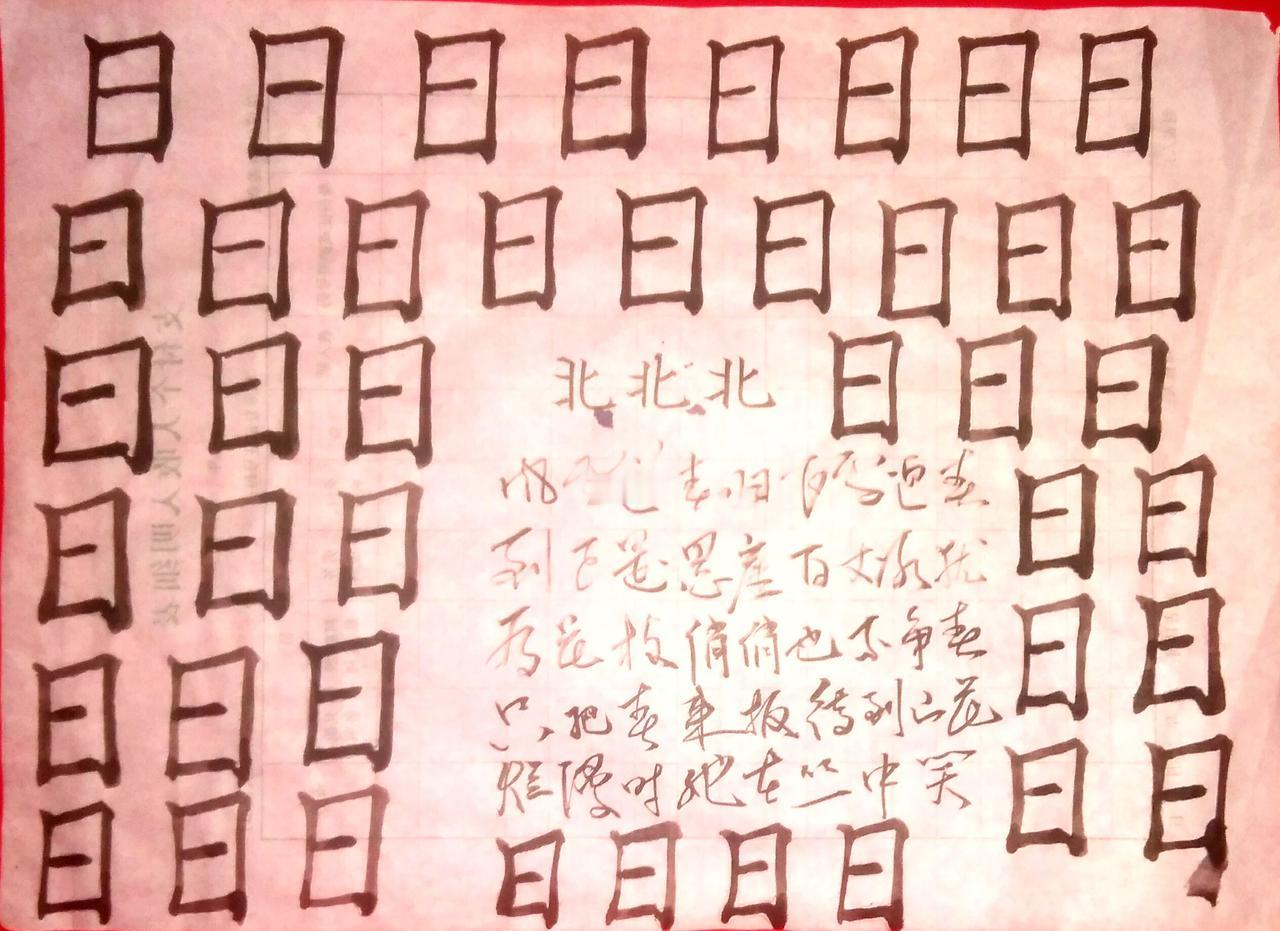 日日日日日日日日
日日日日日日日日日
日日日北北北日日日
风雨送春归飞雪迎春
日日日到已是悬崖百丈冰犹日日
日日日有花枝俏俏也不争春日日
只把春来报待到山花
烂漫时她在丛中笑日日
日日日日日日日